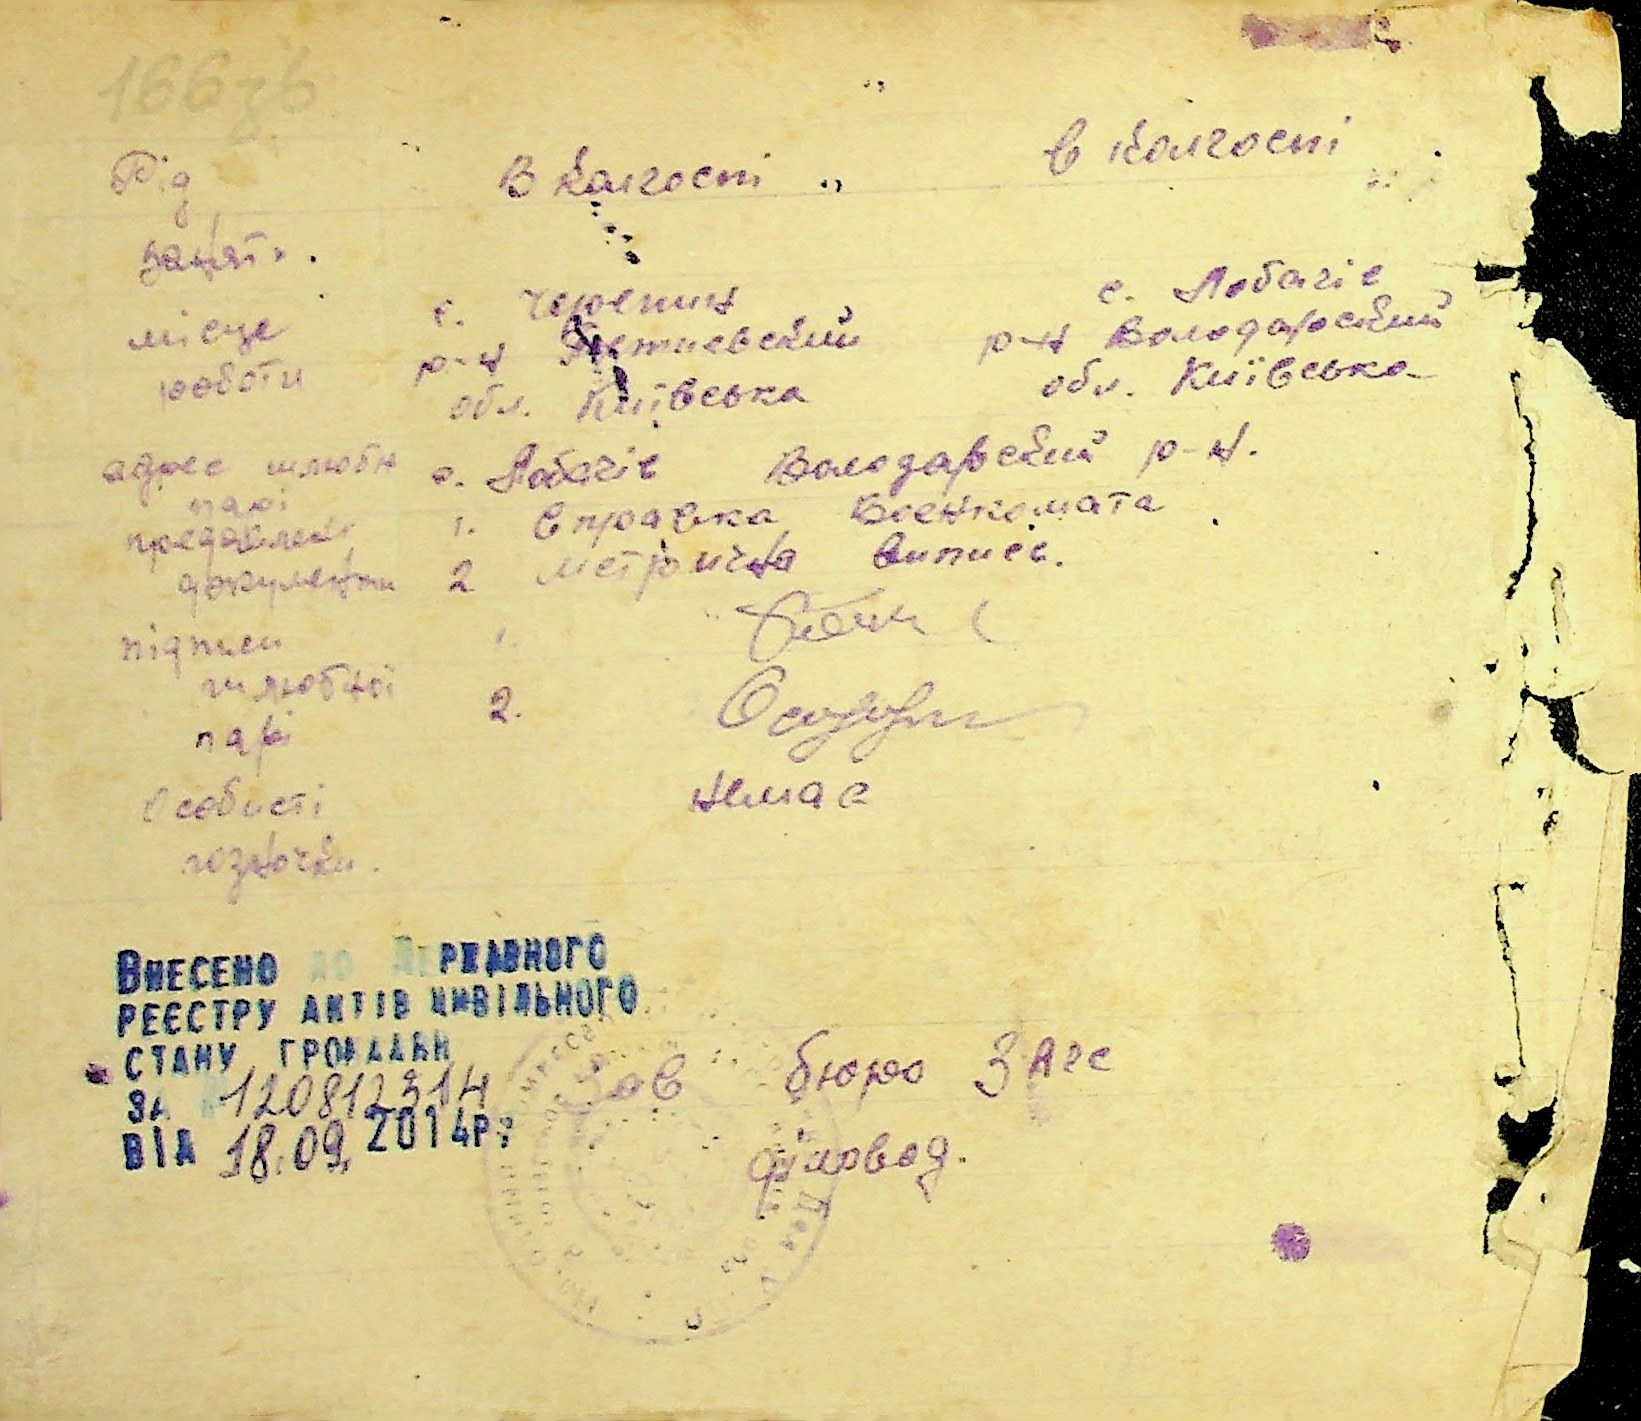 166зв
Рід в колгоспі " в колгоспі "
занят.
місце с. Черепин с. Лобачів
роботи р-н Тетиевский р-н Володарський
обл. Київська обл. Київська
адрес шлюбн с. Лобачів Володарский р-н.
парі
предявлені 1. Справка Военкомата
документи 2 метрична випись.
підписи 1.
шлюбної
парі 2.
Особисті немає
позначки.
Внесено до Державного
реєстру актів цивільного
стану громадян
за № 120812314
від 18.09. 2014р.
Зав бюро Загс
діловод.